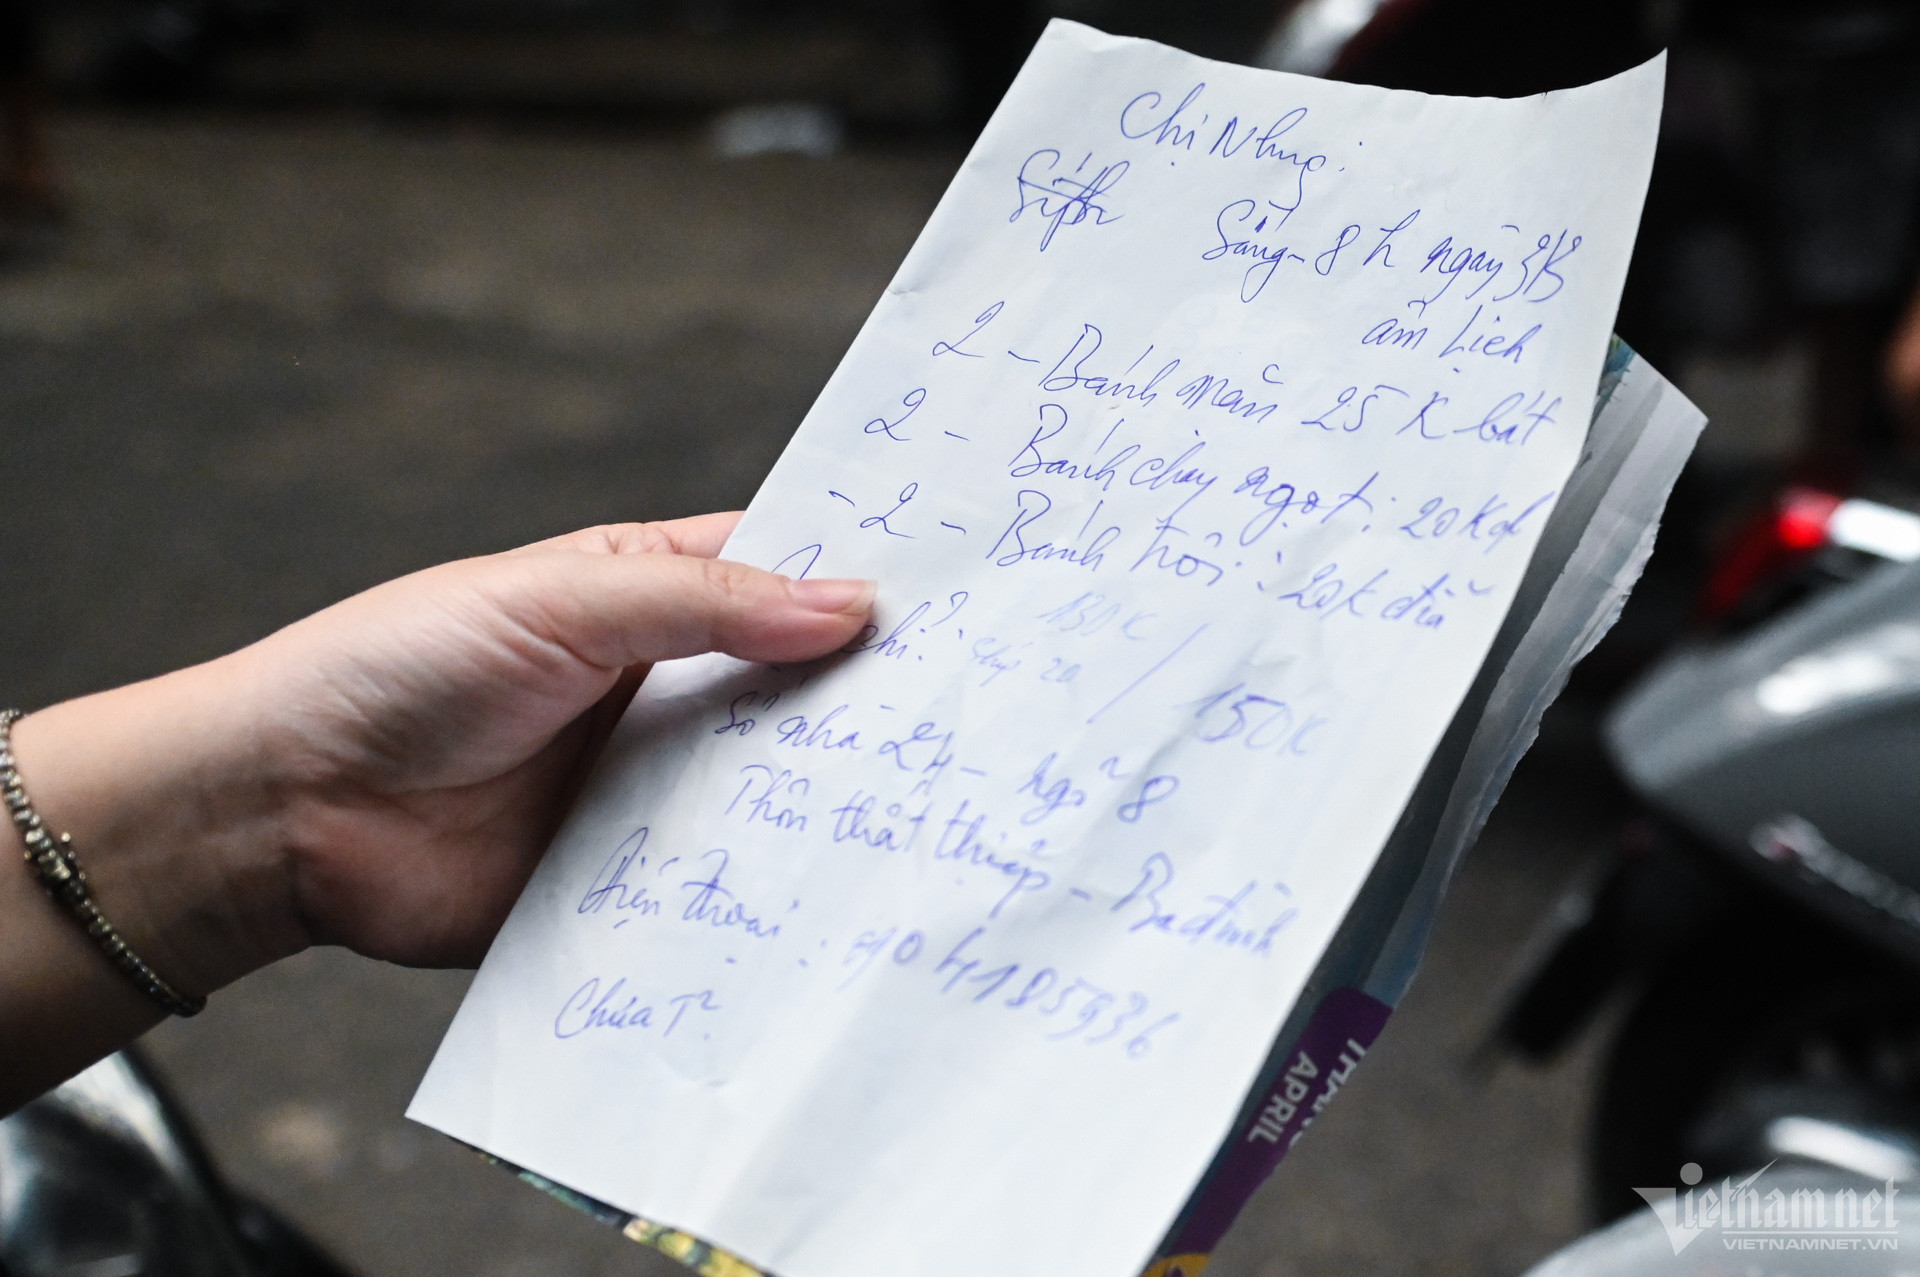 Chị Nhung:
Sáng - 8h ngày 3/3
âm lịch
2 - Bánh mặn 25K bát
2 - Bánh chay ngọt: 20K đ
- 2 - Bánh trôi: 20K đĩa
130K
chỉ: ship 20 / 150K
Số nhà 24 - ngõ 8
Thôn thất thiếp - Ba đình
Điện thoại: 0904185936
Chưa T²
THÁNG
APRIL
Vietnamnet
VIETNAMNET.VN